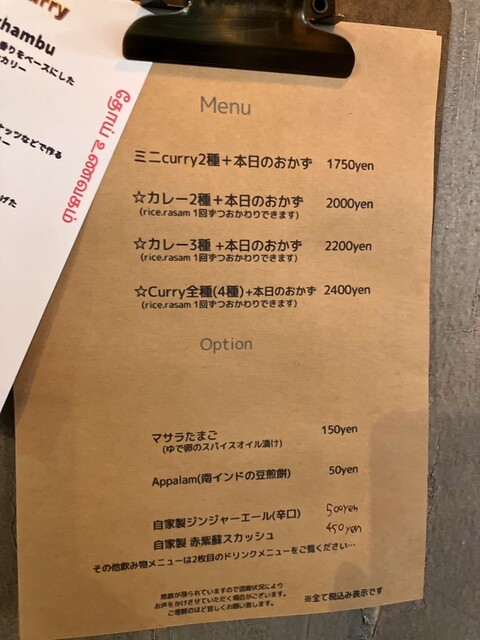 urry
hambu
香りをベースにした
カリー
ナッツなどで作る
リー
げた
Menu
ミニcurry2種＋本日のおかず 1750yen
☆カレー2種＋本日のおかず 2000yen
(rice.rasam 1回ずつおかわりできます)
☆カレー3種 ＋本日のおかず 2200yen
(rice.rasam 1回ずつおかわりできます)
☆Curry全種(4種)＋本日のおかず 2400yen
(rice.rasam 1回ずつおかわりできます)
Option
マサラたまご 150yen
(ゆで卵のスパイスオイル漬け)
Appalam(南インドの豆煎餅) 50yen
自家製ジンジャーエール(辛口) 500yen
自家製 赤紫蘇スカッシュ 450yen
その他飲み物メニューは2枚目のドリンクメニューをご覧ください…
席数が限られていますので混雑状況により
お声をかけさせていただく場合がございます。
ご理解のほど宜しくお願い致します。
※全て税込み表示です